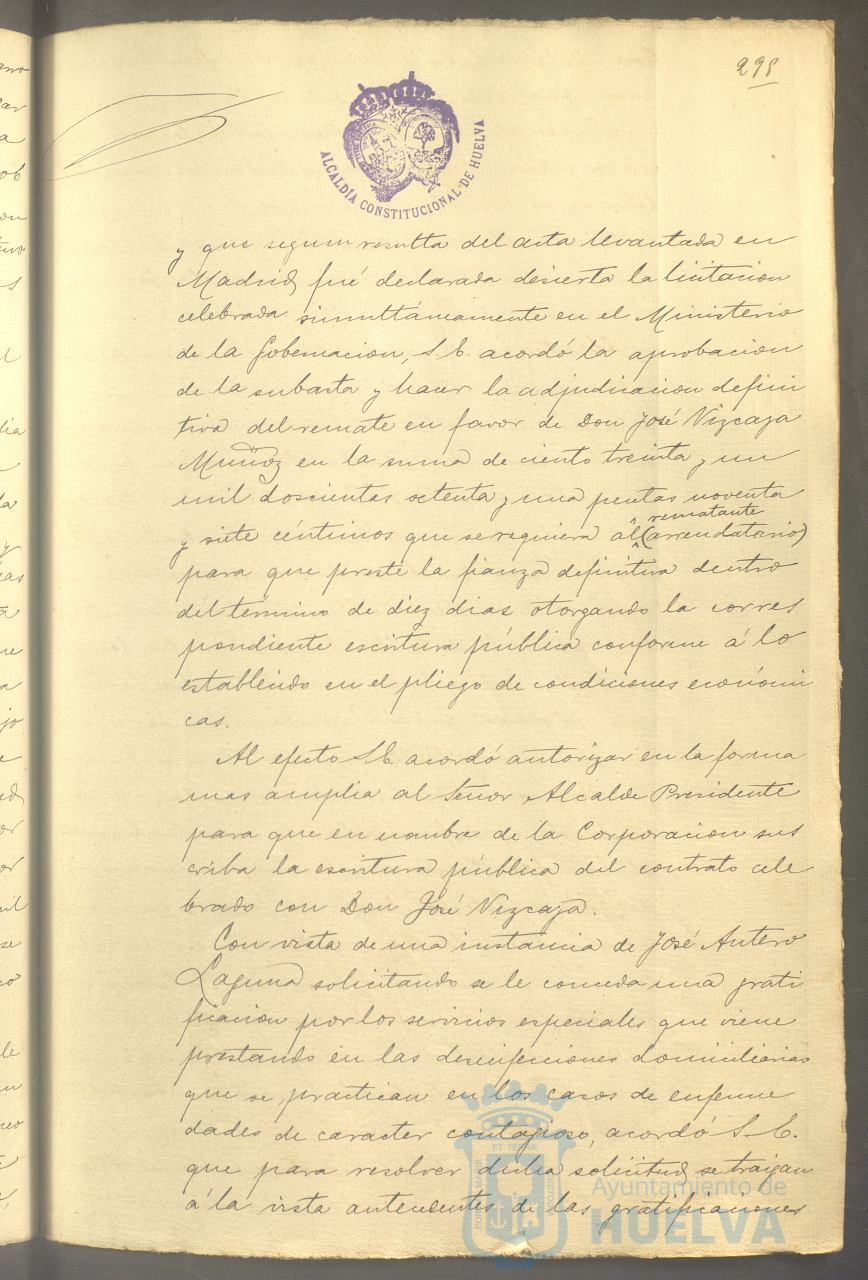 295
ALCALDÍA CONSTITUCIONAL DE HUELVA
y que segun resulta del acta levantada en
Madrid, fué declarada desierta la licitacion
celebrada simultáneamente en el Ministerio
de la Gobernacion, S. E. acordó la aprobacion
de la subasta y hacer la adjudicacion defini
tiva del remate en favor de Don José Vizcaya
Muñoz en la suma de ciento treinta y un
mil doscientas ochenta y una pesetas noventa
rematante
y siete céntimos que se requiera al (arrendatario)
para que preste la fianza definitiva dentro
del término de diez dias otorgando la corres
pondiente escritura pública conforme á lo
establecido en el pliego de condiciones económi
cas.
Al efecto S. E. acordó autorizar en la forma
mas amplia al Señor Alcalde Presidente
para que en nombre de la Corporacion sus
criba la escritura pública del contrato cele
brado con Don José Vizcaya.
Con vista de una instancia de José Antero
Laguna solicitando se le conceda una grati
ficacion por los servicios especiales que viene
prestando en las desinfecciones domiciliarias
que se practican en los casos de enferme
dades de caracter contagioso, acordó S. E.
que para resolver dicha solicitud se traigan
á la vista antecedentes de las gratificaciones
Ayuntamiento de
HUELVA